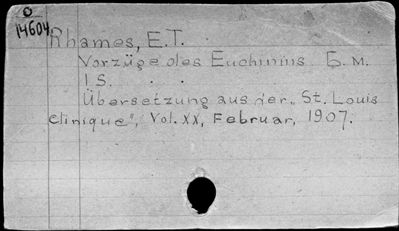 O
14604
Rhames, E.T.
Vorzüge des Euchinins. G. M.
1 S. . .
Übersetzung aus der „St. Louis
Clinique", Vol. XX, Februar, 1907.